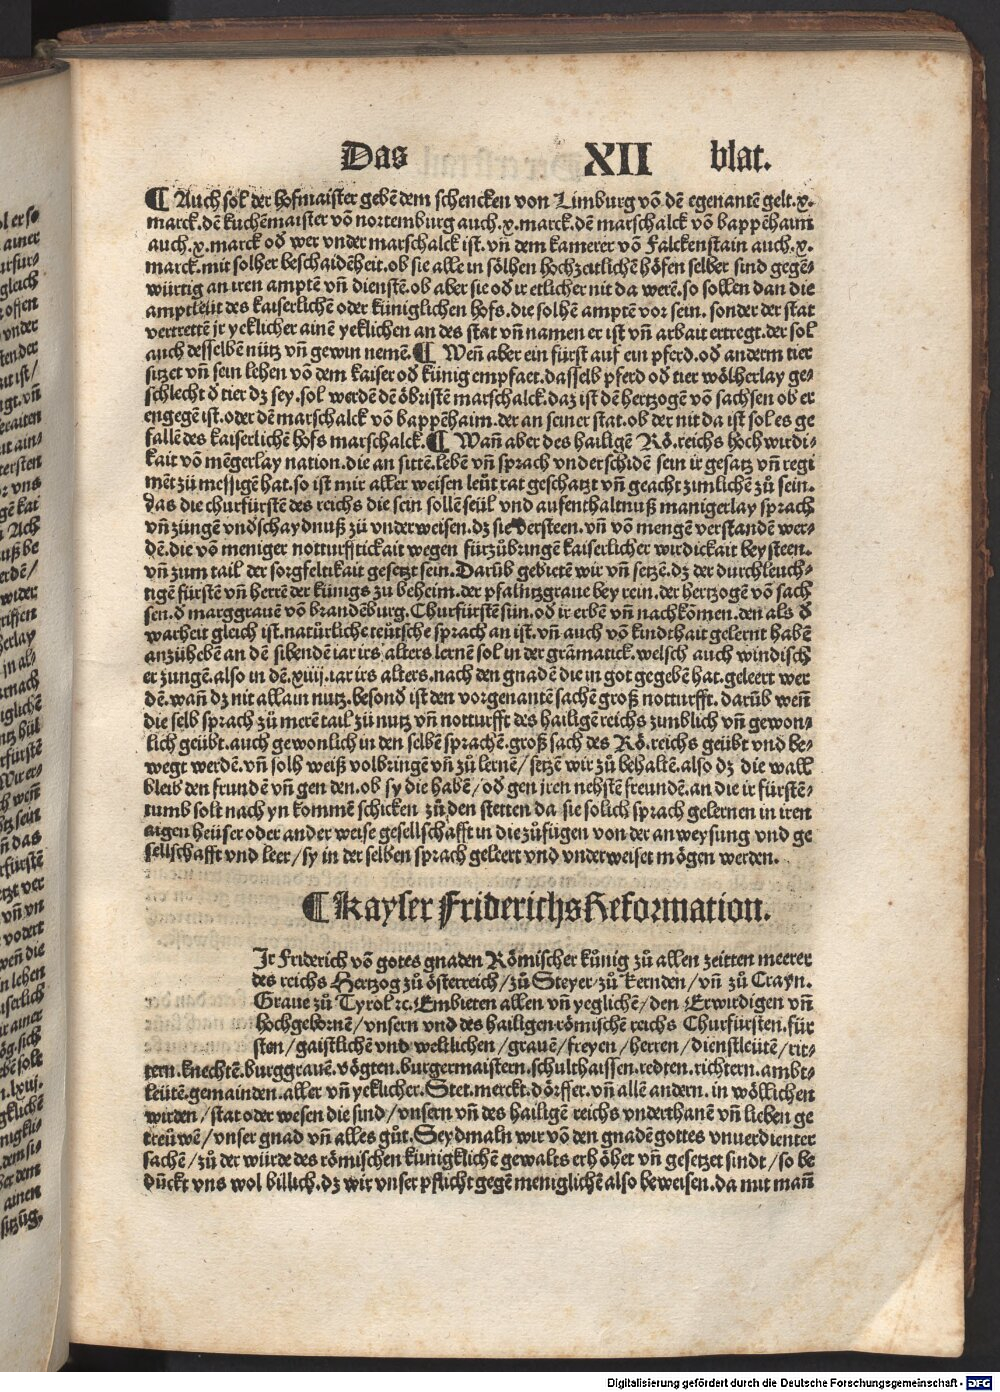 Das XII blat.
¶ Auch sol der hofmaister gebē dem schencken von Limburg vō dē egenantē gelt.x.
marck.dē kuchēmaister vō nortemburg auch.x.marck.dē marschalck vō bappēhaim
auch.x.marck od̄ wer vnder marschalck ist.vn̄ dem kamerer vō Falckenstain auch.x.
marck.mit solher beschaidēheit.ob sie alle in sölhen hochzeitlichē höfen selber sind gegē⸗
würtig an iren amptē vn̄ dienstē.ob aber sie od̄ ir etlicher nit da werē.so sollen dan die
amptleüt des kaiserlichē oder küniglichen hofs.die solhē amptē vor sein.sonder der stat
vertrettē jr yeklicher ainē yeklichen an des stat vn̄ namen er ist vn̄ arbait ertregt.der sol
auch desselbē nütz vn̄ gewin nemē.¶ Wen̄ aber ein fürst auf ein pferd.od̄ anderm tier
sitzet vn̄ sein lehen vō dem kaiser od̄ künig empfaet.dasselb pferd od̄ tier wölherlay ge⸗
schlecht d̄ tier dz sey.sol werdē dē öbristē marschalck.daz ist dē hertzogē vō sachsen ob er
engegē ist.oder dē marschalck vō bappēhaim.der an seiner stat.ob der nit da ist sol es ge
fallē des kaiserlichē hofs marschalck.¶ Wan̄ aber des hailigē Rō.reichs hochwirdi⸗
kait vō mēgerlay nation.die an sittē.lebē vn̄ sprach vnderschidē sein ir gesatz vn̄ regi
mēt zü messigē hat.so ist mir aller weisen leüt rat geschatzt vn̄ geacht zimlichē zů sein.
das die churfürstē des reichs die sein sollē seül vnd aufenthaltnuß manigerlay sprach
vn̄ züngē vndschaydnuß zü vnderweisen.dz sie versteen.vn̄ vō mengē verstandē wer⸗
dē.die vō meniger notturfftickait wegen fürzůbringē kaiserlicher wirdickait beysteen.
vn̄ zum tail der sorgfeltikait gesetzt sein.Darūb gebietē wir vn̄ setzē.dz der durchleuch⸗
tigē fürstē vn̄ herrē der künigs zu beheim.der pfalntzgraue bey rein.der hertzogē vō sach
sen.d̄ marggrauē vō brandēburg.Churfürstē sün.od̄ ir erbē vn̄ nachkōmen.den als d̄
warheit gleich ist.natürliche teütsche sprach an ist.vn̄ auch vō kindthait gelernt habē
anzühebē an dē sibendē iar irs alters lernē sol in der grāmatick.welsch auch windisch
er zungē.also in dē.xiiij.iar irs alters.nach den gnadē die in got gegebē hat.geleert wer
dē.wan̄ dz nit allain nutz.besond̄ ist den vorgenantē sachē groß notturfft.darūb wen̄
die selb sprach zů merē tail zü nutz vn̄ notturfft des hailigē reichs zimblich vn̄ gewon⸗
lich geübt.auch gewonlich in den selbē sprachē.groß sach des Rō.reichs geübt vnd be⸗
wegt werdē.vn̄ solh weiß volbringē vn̄ zů lernē/setzē wir zů behaltē.also dz die wall
bleib den frundē vn̄ gen den.ob sy die habē/od̄ gen jren nehstē freundē.an die ir fürstē⸗
tumb solt nach yn kommē schicken zů den stetten da sie solich sprach gelernen in iren
aigen heüser oder ander weise gesellschafft in die zůfügen von der anweysung vnd ge
sellschafft vnd leer/sy in der selben sprach geleert vnd vnderweiset mögen werden.
¶ Kayser Friderichs Reformation.
Ir Friderich vō gotes gnaden Römischer künig zů allen zeitten meerer
des reichs Hertzog zů österreich/zů Steyer/zů Kernden/vn̄ zů Crayn.
Graue zů Tyrol ꝛc.Embieten allen vn̄ yeglichē/den Erwirdigen vn̄
hochgebornē/vnsern vnd des hailigen römischē reichs Churfürsten.für
sten/gaistlichen vnd weltlichen/grauē/freyen/herren/dienstleütē/rit⸗
tern.knechtē.burggrauē.vögten.burgermaistern.schulthaissen.redten.richtern.ambt⸗
leütē.gemainden.aller vn̄ yeklicher.Stet.merckt.dörffer.vn̄ allē andern.in wöllichen
wirden/stat oder wesen die sind/vnsern vn̄ des hailigē reichs vnderthanē vn̄ lieben ge
treüwē/vnser gnad vn̄ alles gůt.Seydmaln wir vō den gnadē gottes vnuerdienter
sachē/zů der würde des römischen künigklichē gewalts erhöhet vn̄ gesetzet sindt/so be
dückt vns wol billich.dz wir vnser pflicht gegē meniglichē also beweisen.da mit man̄
Digitalisierung gefördert durch die Deutsche Forschungsgemeinschaft - DFG